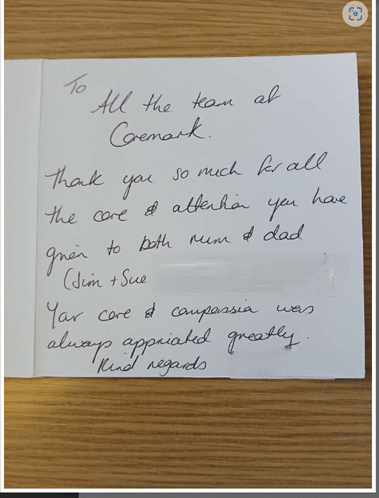 To
All the team at
Caremark.
Thank you so much for all
the care & attention you have
given to both mum & dad
(Jim + Sue
Your care & compassion was
always appriated greatly.
Kind regards